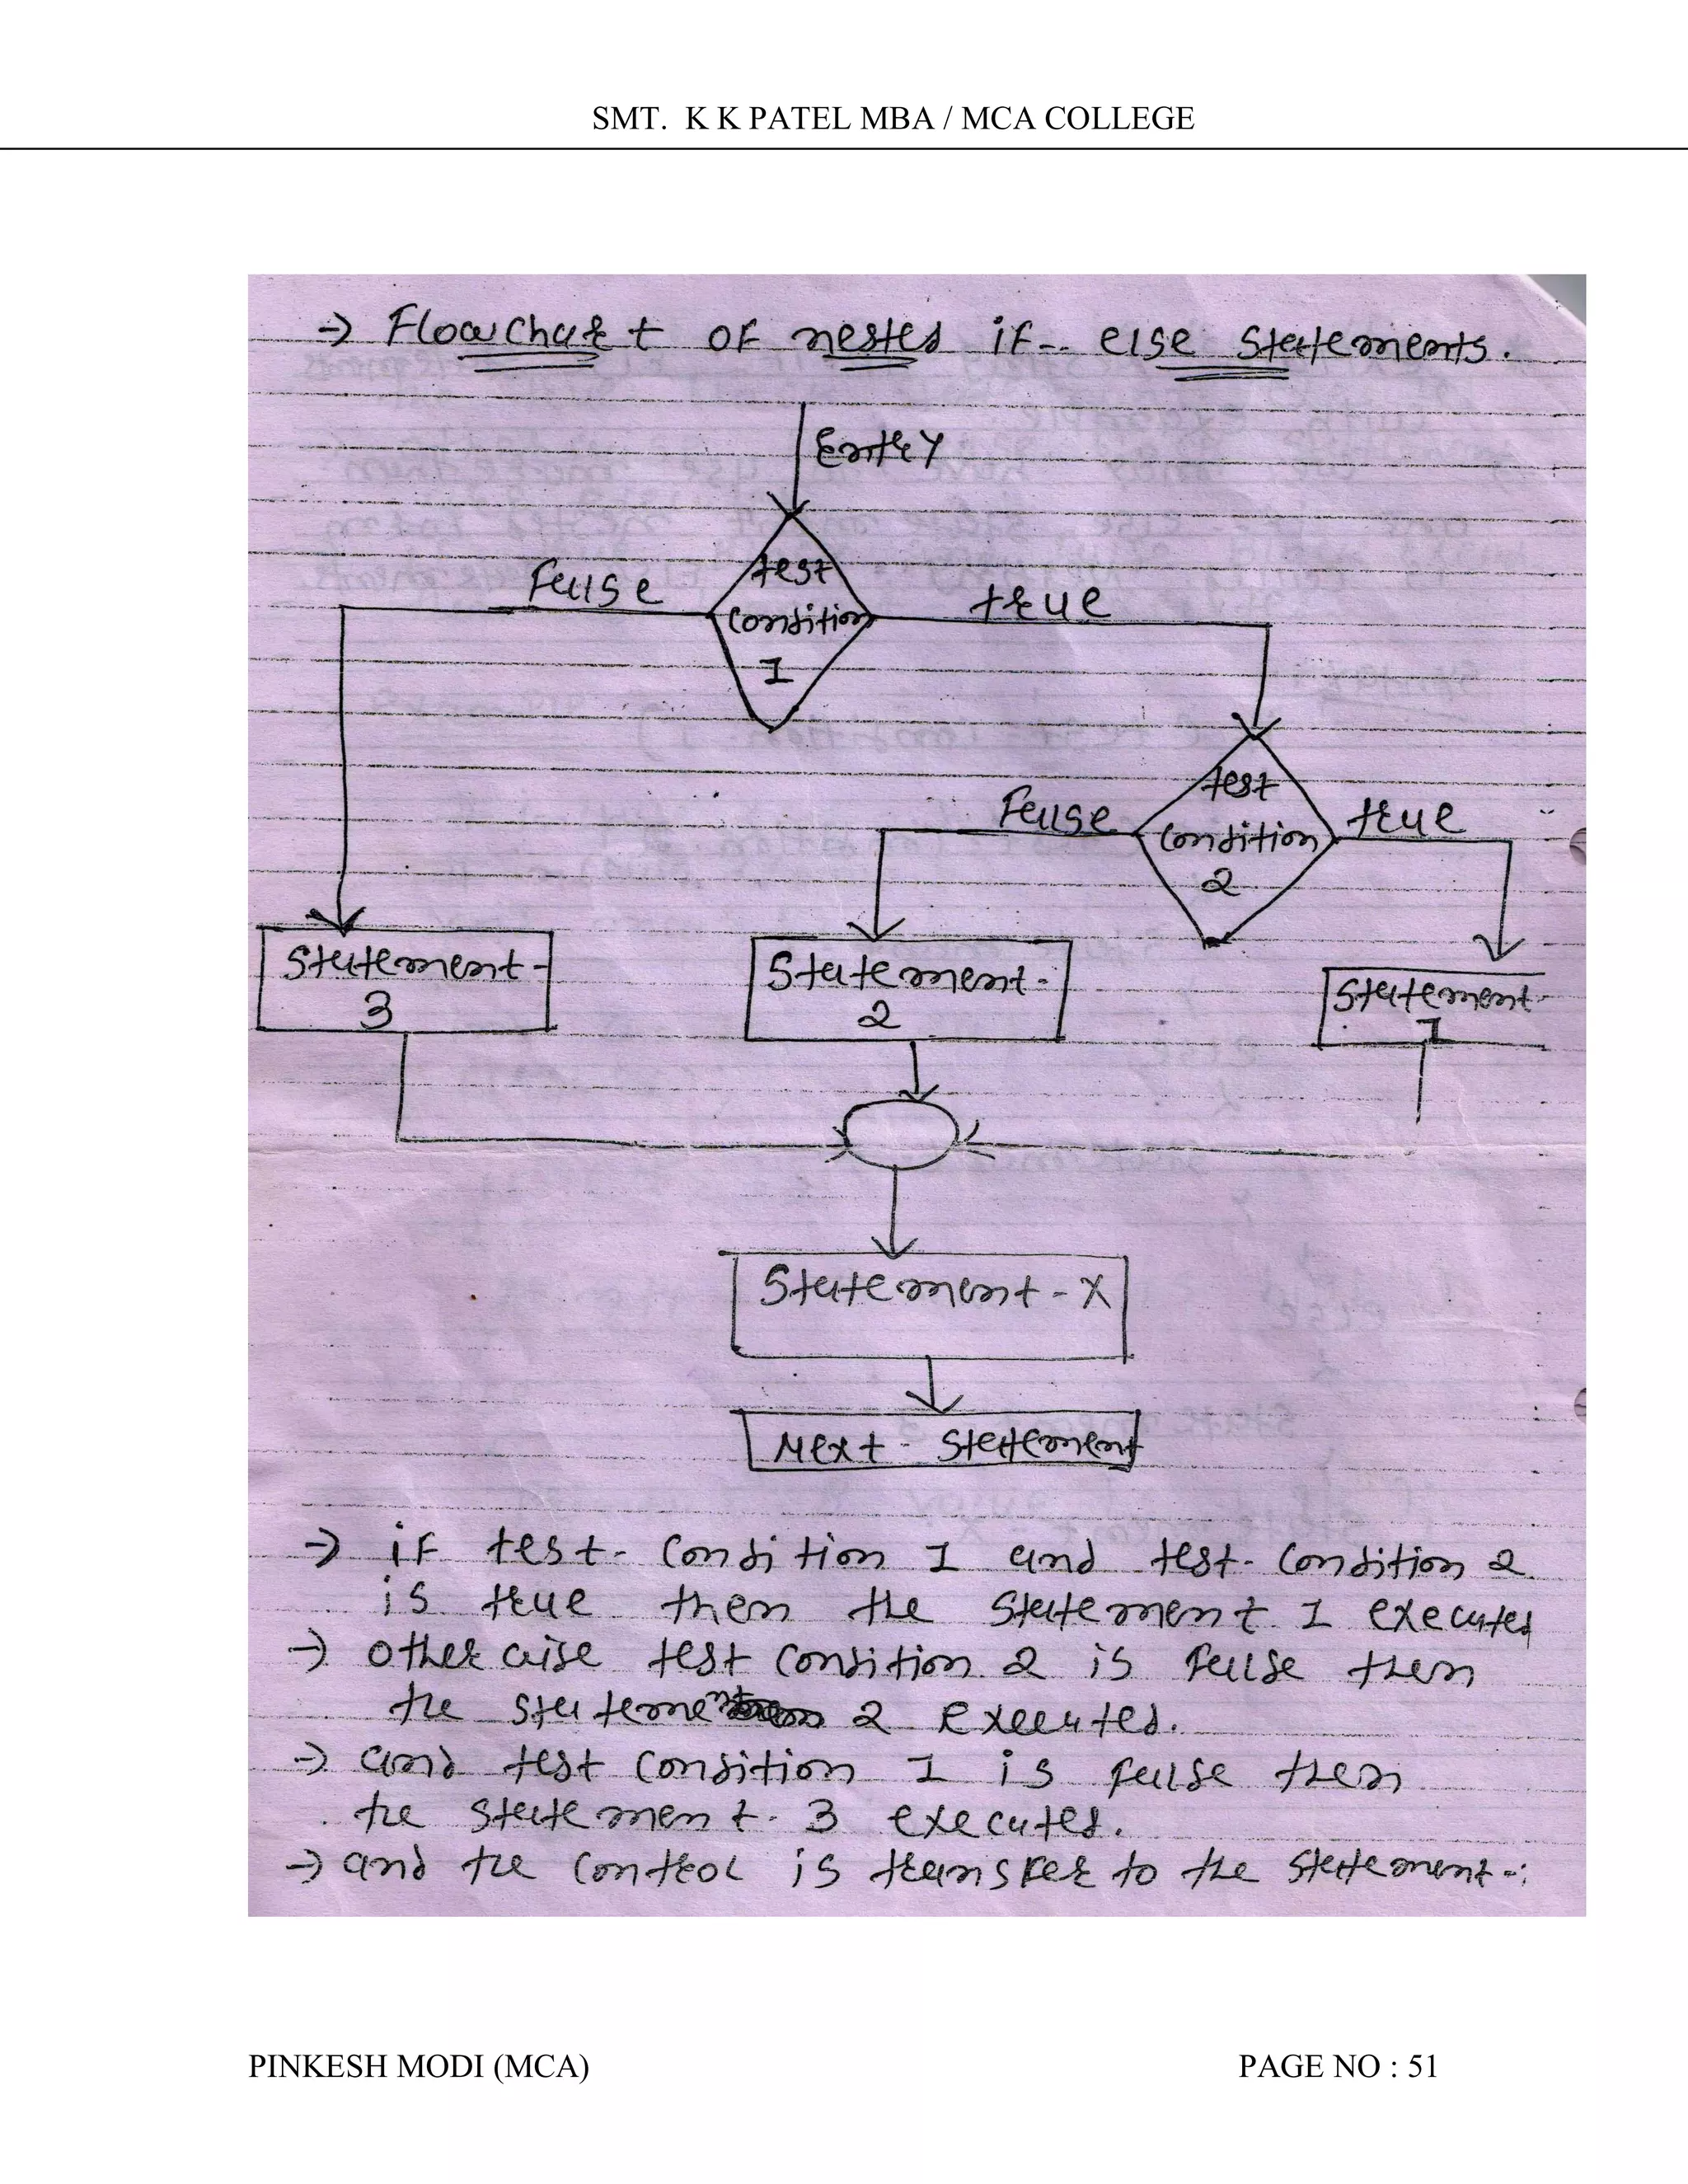 SMT. K K PATEL MBA / MCA COLLEGE
→ Flowchart of nested if-- else statements.
Entry
False
test
condition
1
true
False
test
condition
2
true
Statement-
3
Statement-
2
Statement-
1
Statement-X
Next- statement
→ if test- condition 1 and test- condition 2
is true then the statement 1 executed
→ otherwise test condition 2 is false then
the statement 2 executed.
→ and test condition 1 is false then
the statement- 3 executed.
→ and the control is transfer to the statement-
PINKESH MODI (MCA) PAGE NO : 51